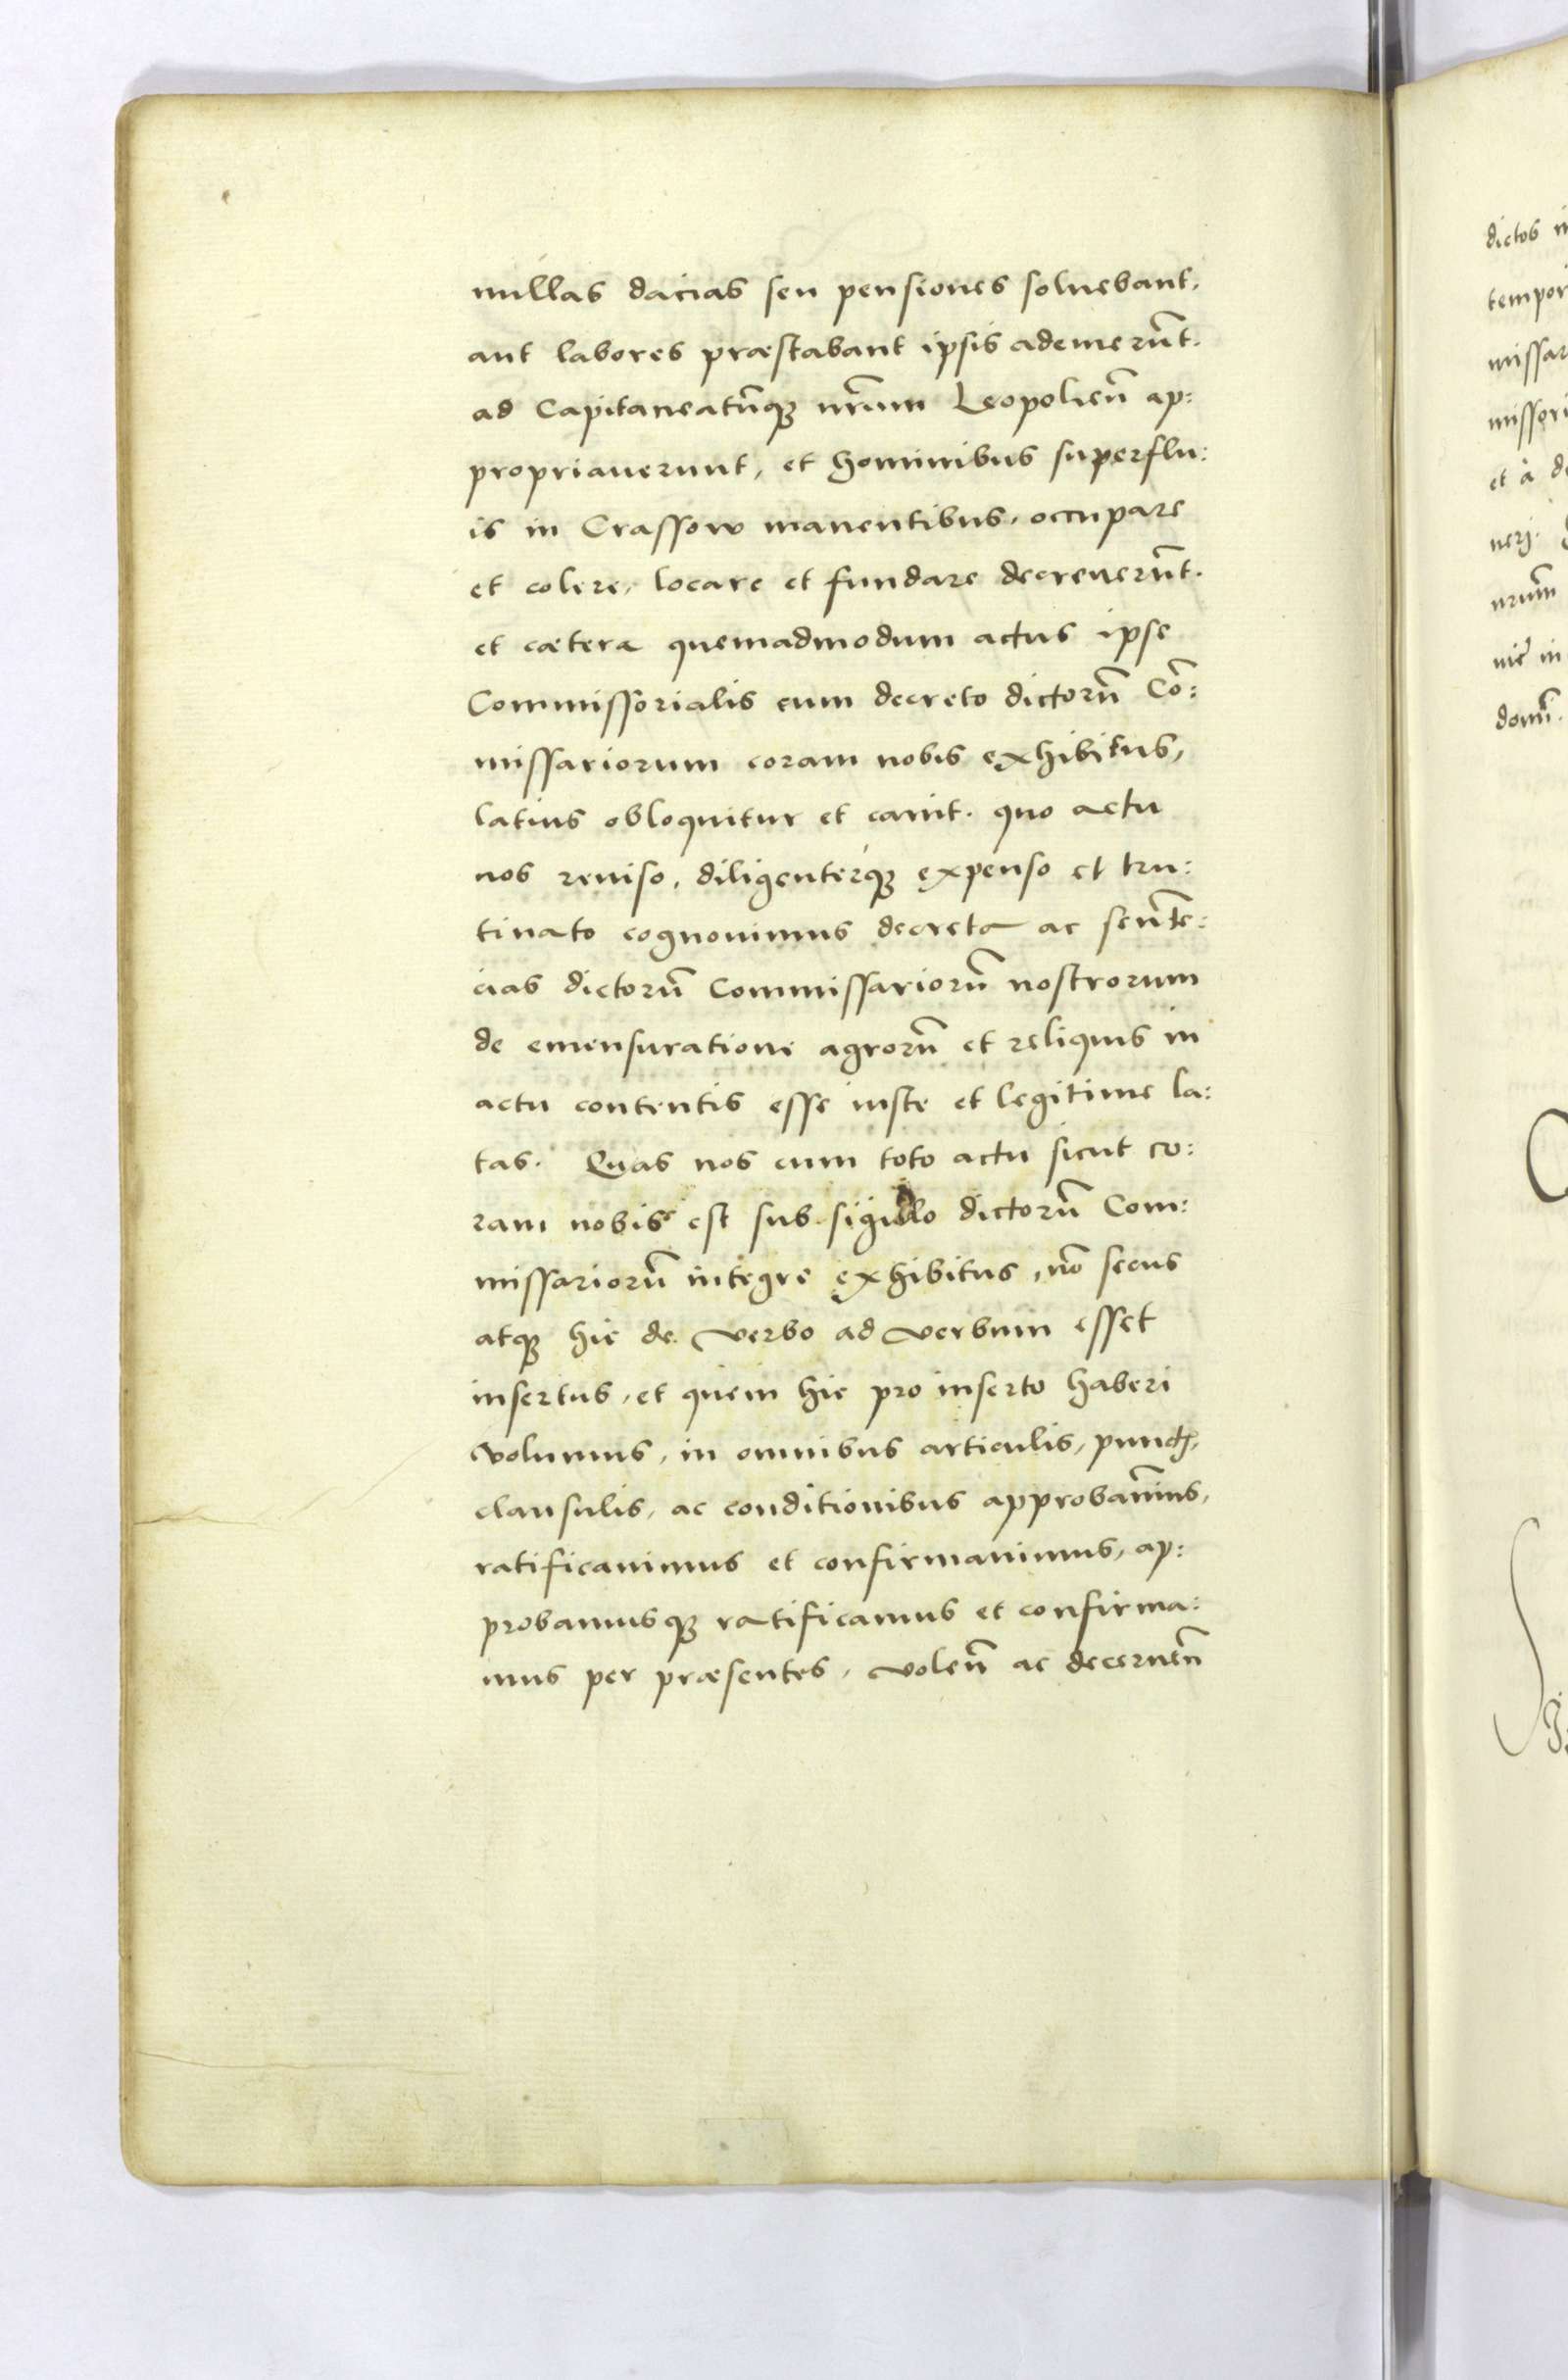 nullas dacias seu pensiones soluebant,
aut labores præstabant ipsis ademerūt.
ad Capitaneatūq; nr̃um Leopolieñ ap:
propriauerunt, et hominibus superflu:
is in Crassow manentibus, occupare
et colere, locare et fundare decreuerūt.
et cætera quemadmodum actus ipse
Commissorialis cum decreto dictorū Cō:
missariorum coram nobis exhibitus,
latius obloquitur et canit. quo actu
nos reuiso, diligenterq; expenso et tru:
tinato cognouimus decreta ac senēte:
cias dictorū Commissariorū nostrorum
de emensuratione agrorū et reliquis in
actu contentis esse iuste et legitime la:
tas. Quas nos cum toto actu sicut co:
ram nobis est sub sigillo dictorū Com:
missariorū integre exhibitus, nō secus
atq; hic de verbo ad verbum esset
insertus, et quem hic pro inserto haberi
volumus, in omnibus articulis, punct,
clausulis, ac conditionibus approbauīmus,
ratificauimus et confirmauimus, ap:
probamusq; ratificamus et confirma:
mus per præsentes, voleñ ac decerneñ
dictos
tempor
missar
missori
et à
neri.
nrūm
in
domī.